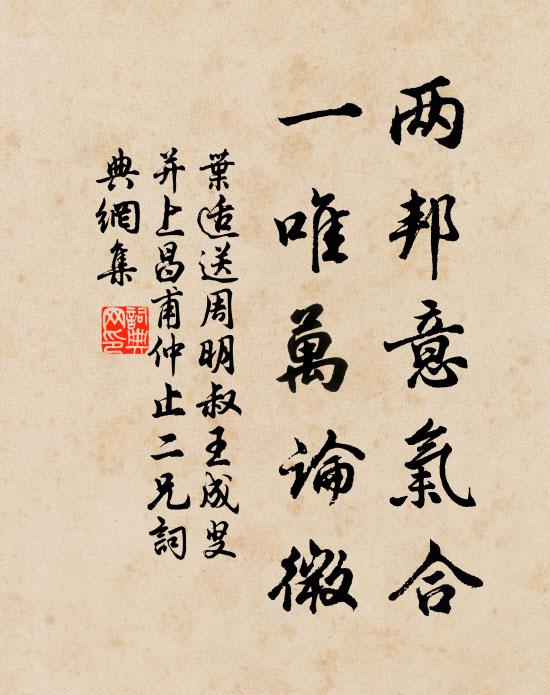 两邦意氣合
一唯萬論微
葉适送周明叔王成叟
并上昌甫仲止二兄詞
典網集
詞典
网印